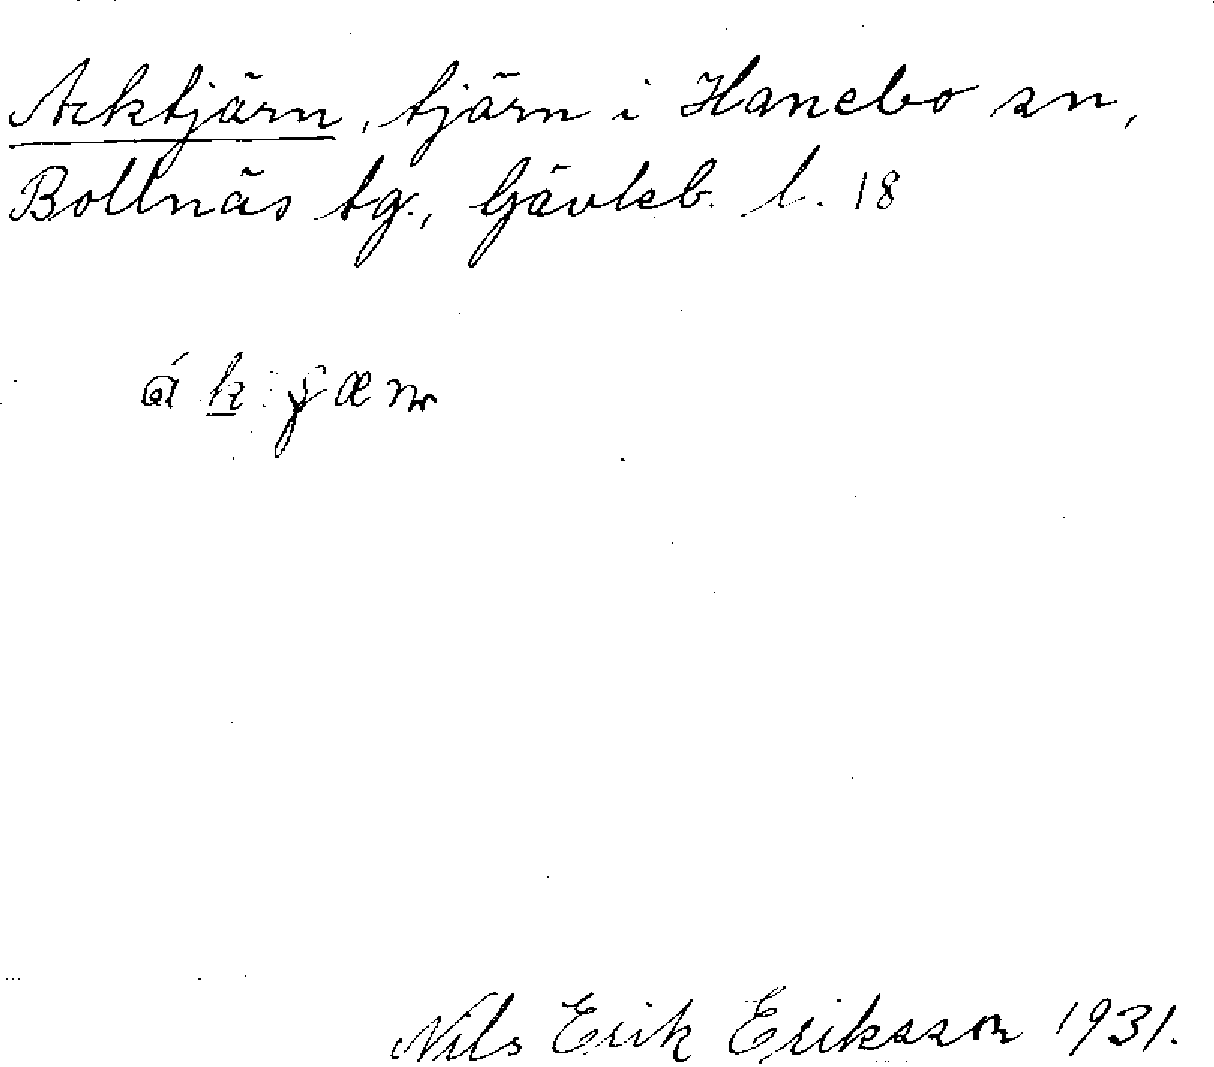 Acktjärn, tjärn i Hanebo sn,
Bollnäs tg., Gävleb. l. 18
Nils Erik Eriksson 1931.